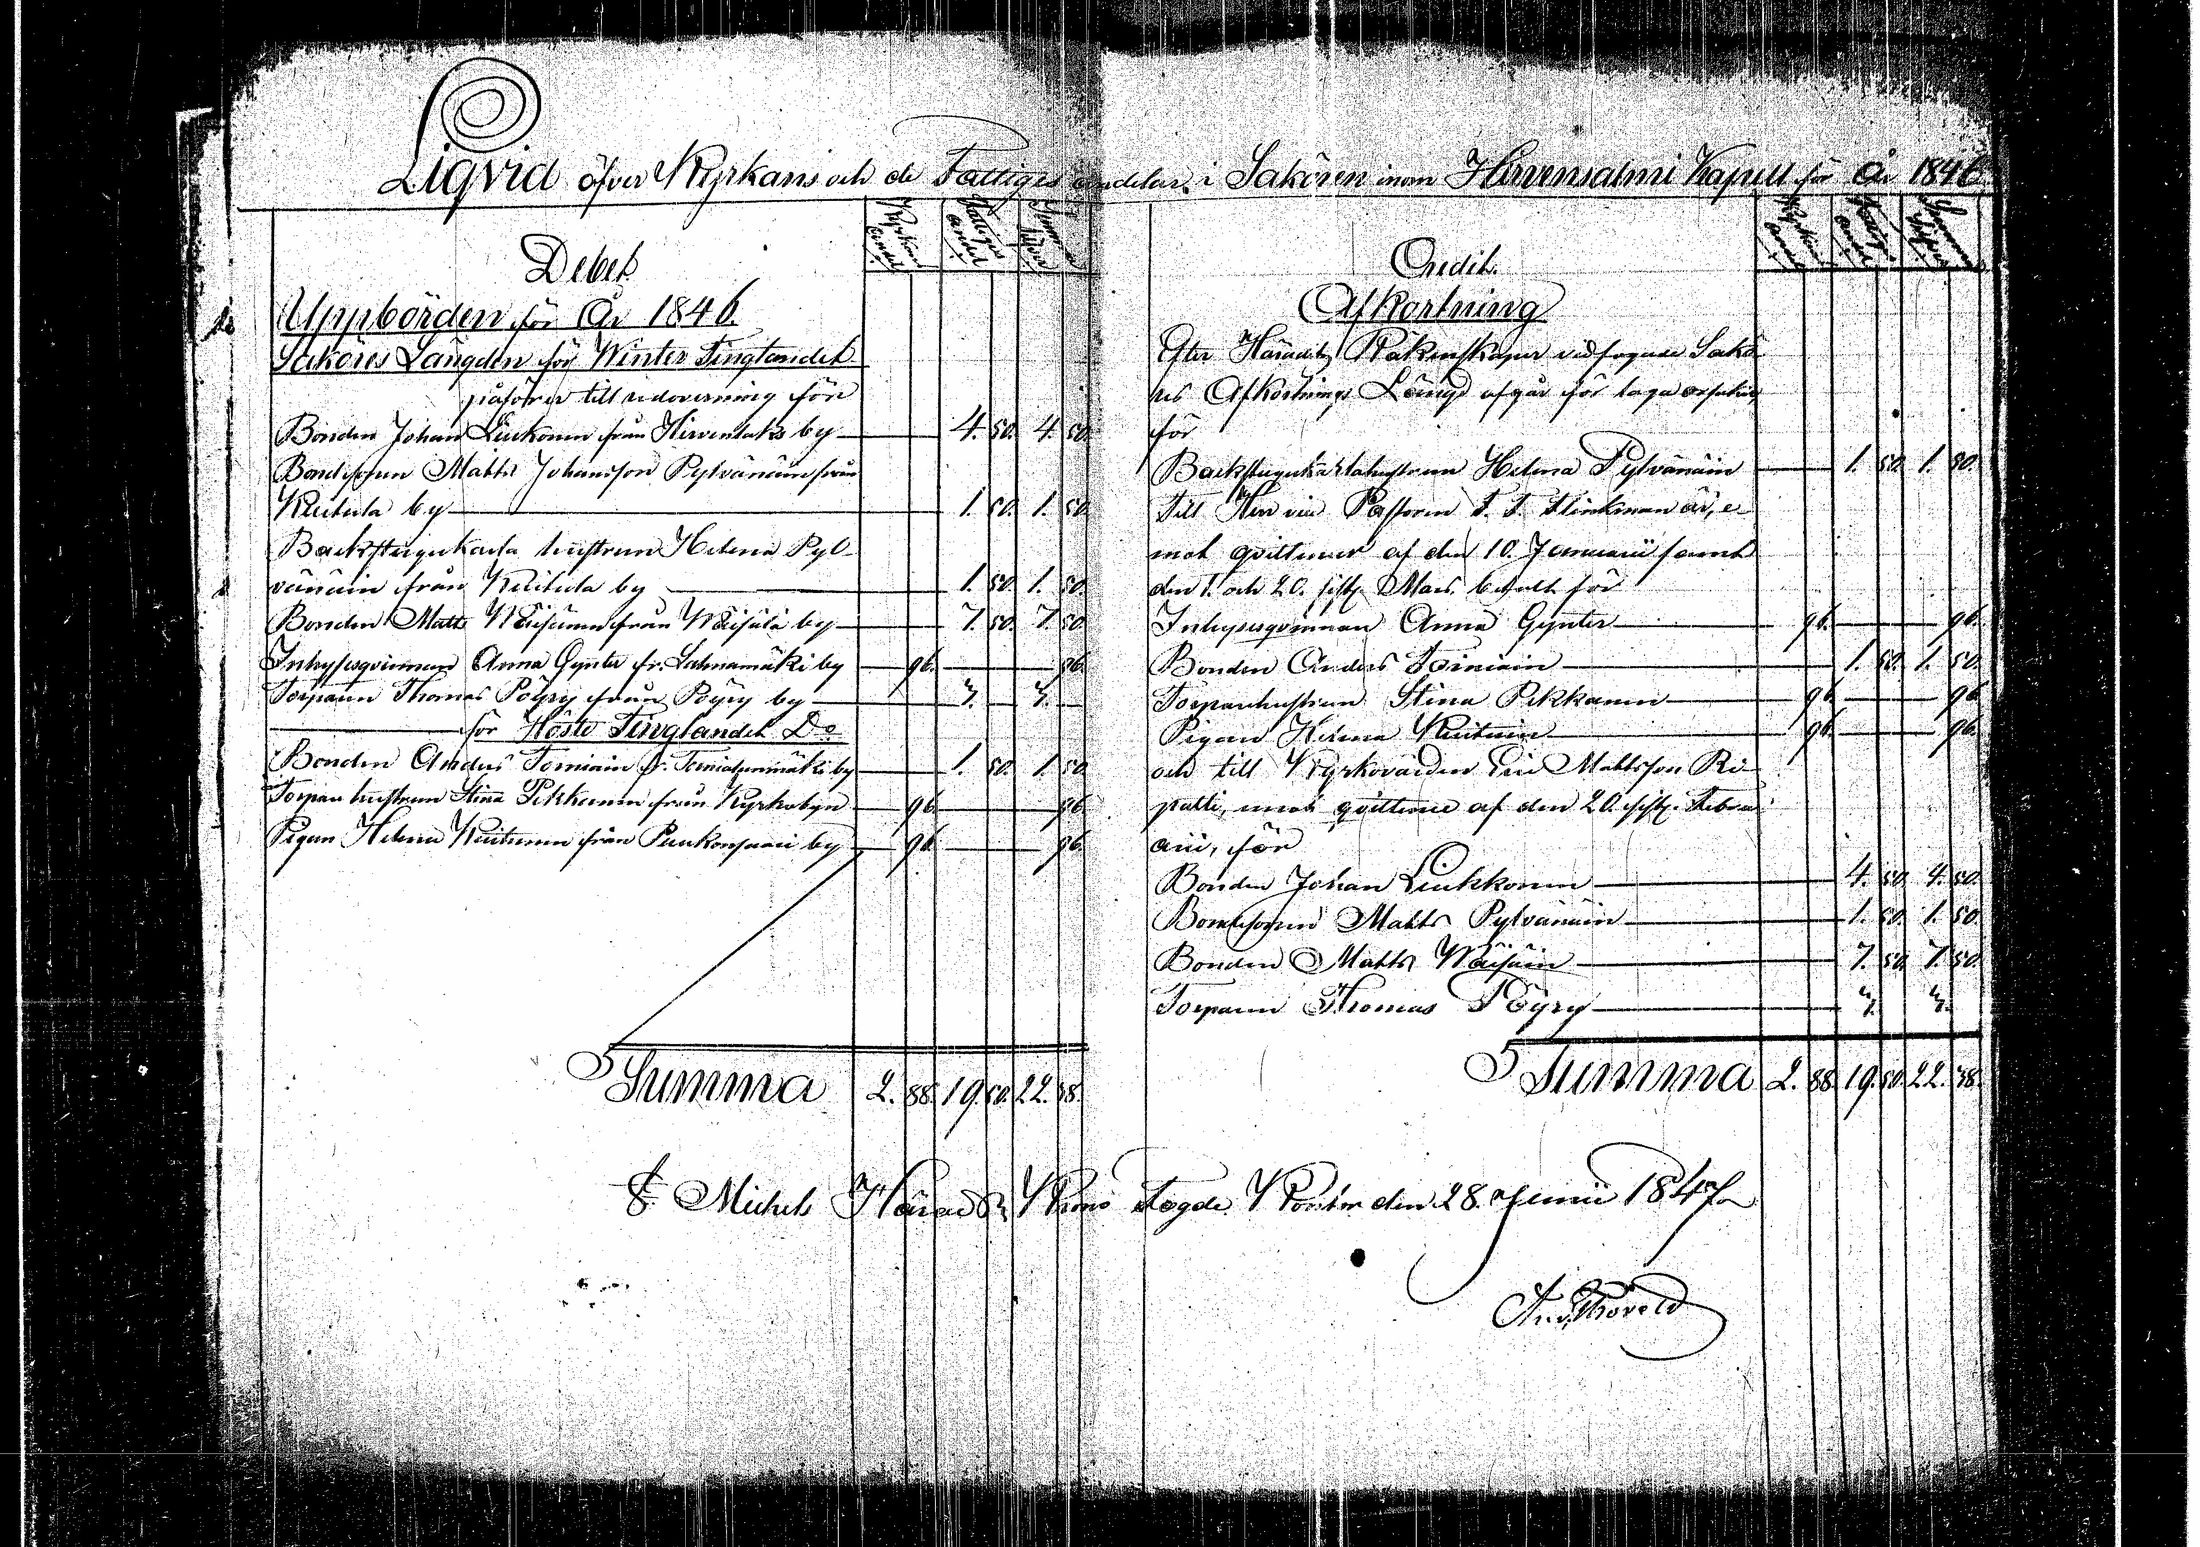 Liqvid öfver Kyrkans och de Fattiges andelar i Sakören inom Hirvensalmi Kapell för År 1846
Kyrkans andel Fattiges andel Summa Silfver
Debet
Uppbörden för År 1846.
Saköres Längden för Winter Tinget andel
påförer till redovisning för
Bonden Johan Liukonen från Hirvenlaks by 4. 50. 4. 50.
Bondesonen Matts Johansson Pylvänäin från
Kuitula by 1. 50. 1. 50.
Backstugukarls hustrun Helena Pyl-
vänäin från Kuitula by 1. 50. 1. 50.
Bonden Matts Wäisänen från Wäisälä by 7. 50. 7. 50
Inhysesqvinnan Anna Gynter fr. Lahnamäki by 96. 96.
Torparen Thomas Pöyry från Pöyry by 3. 3.
för Höste Tinget andel Do
Bonden Anders Torniain fr. Torniaisenmäki by 1. 50. 1. 50
Torpare hustrun Stina Pekkanen från Kyrkobyn 96. 96
Pigan Helena Kuitunen från Puukonsaari by 96. 96.
Summa 2. 88. 19. 50. 22. 38.
Kyrkans andel Fattiges andel Summa Silfver
Credit.
Afkortning
Efter Häradets Räkenskaper vidfogade Sakö-
res Afkortnings Längd afgår för laga orsaker
för
Backstugukarlahustrun Helena Pylvänäin 1. 50. 1. 50.
Till Herr vice Pastorn är, e-
mot qvittencer af den 10. Januarii samt
den 1. och 20. sistl. Mars betalt för
Inhysesqvinnan Anna Gynter 96. 96.
Bonden Anders Torniain 1. 50. 1. 50.
Torparehustrun Stina Pekkanen 96 96
Pigan Helena Kuituin 96. 96.
och till Kyrkovärden Eric Mattsson Ri-
patti, emot qvittence af den 20. sistl. Febru-
arii, för
Bonden Johan Liukkonen 4. 50. 4. 50.
Bondesonen Matts Pylvänäin 1. 50. 1. 50.
Bonden Matts Wäisäin 7. 50. 7. 50.
Torparen Thomas Pöyry 3. 3.
Summa 2. 88. 19. 50. 22. 38.
S:t Michels Härads Krono Fogde Kontor den 28. Junii 1847